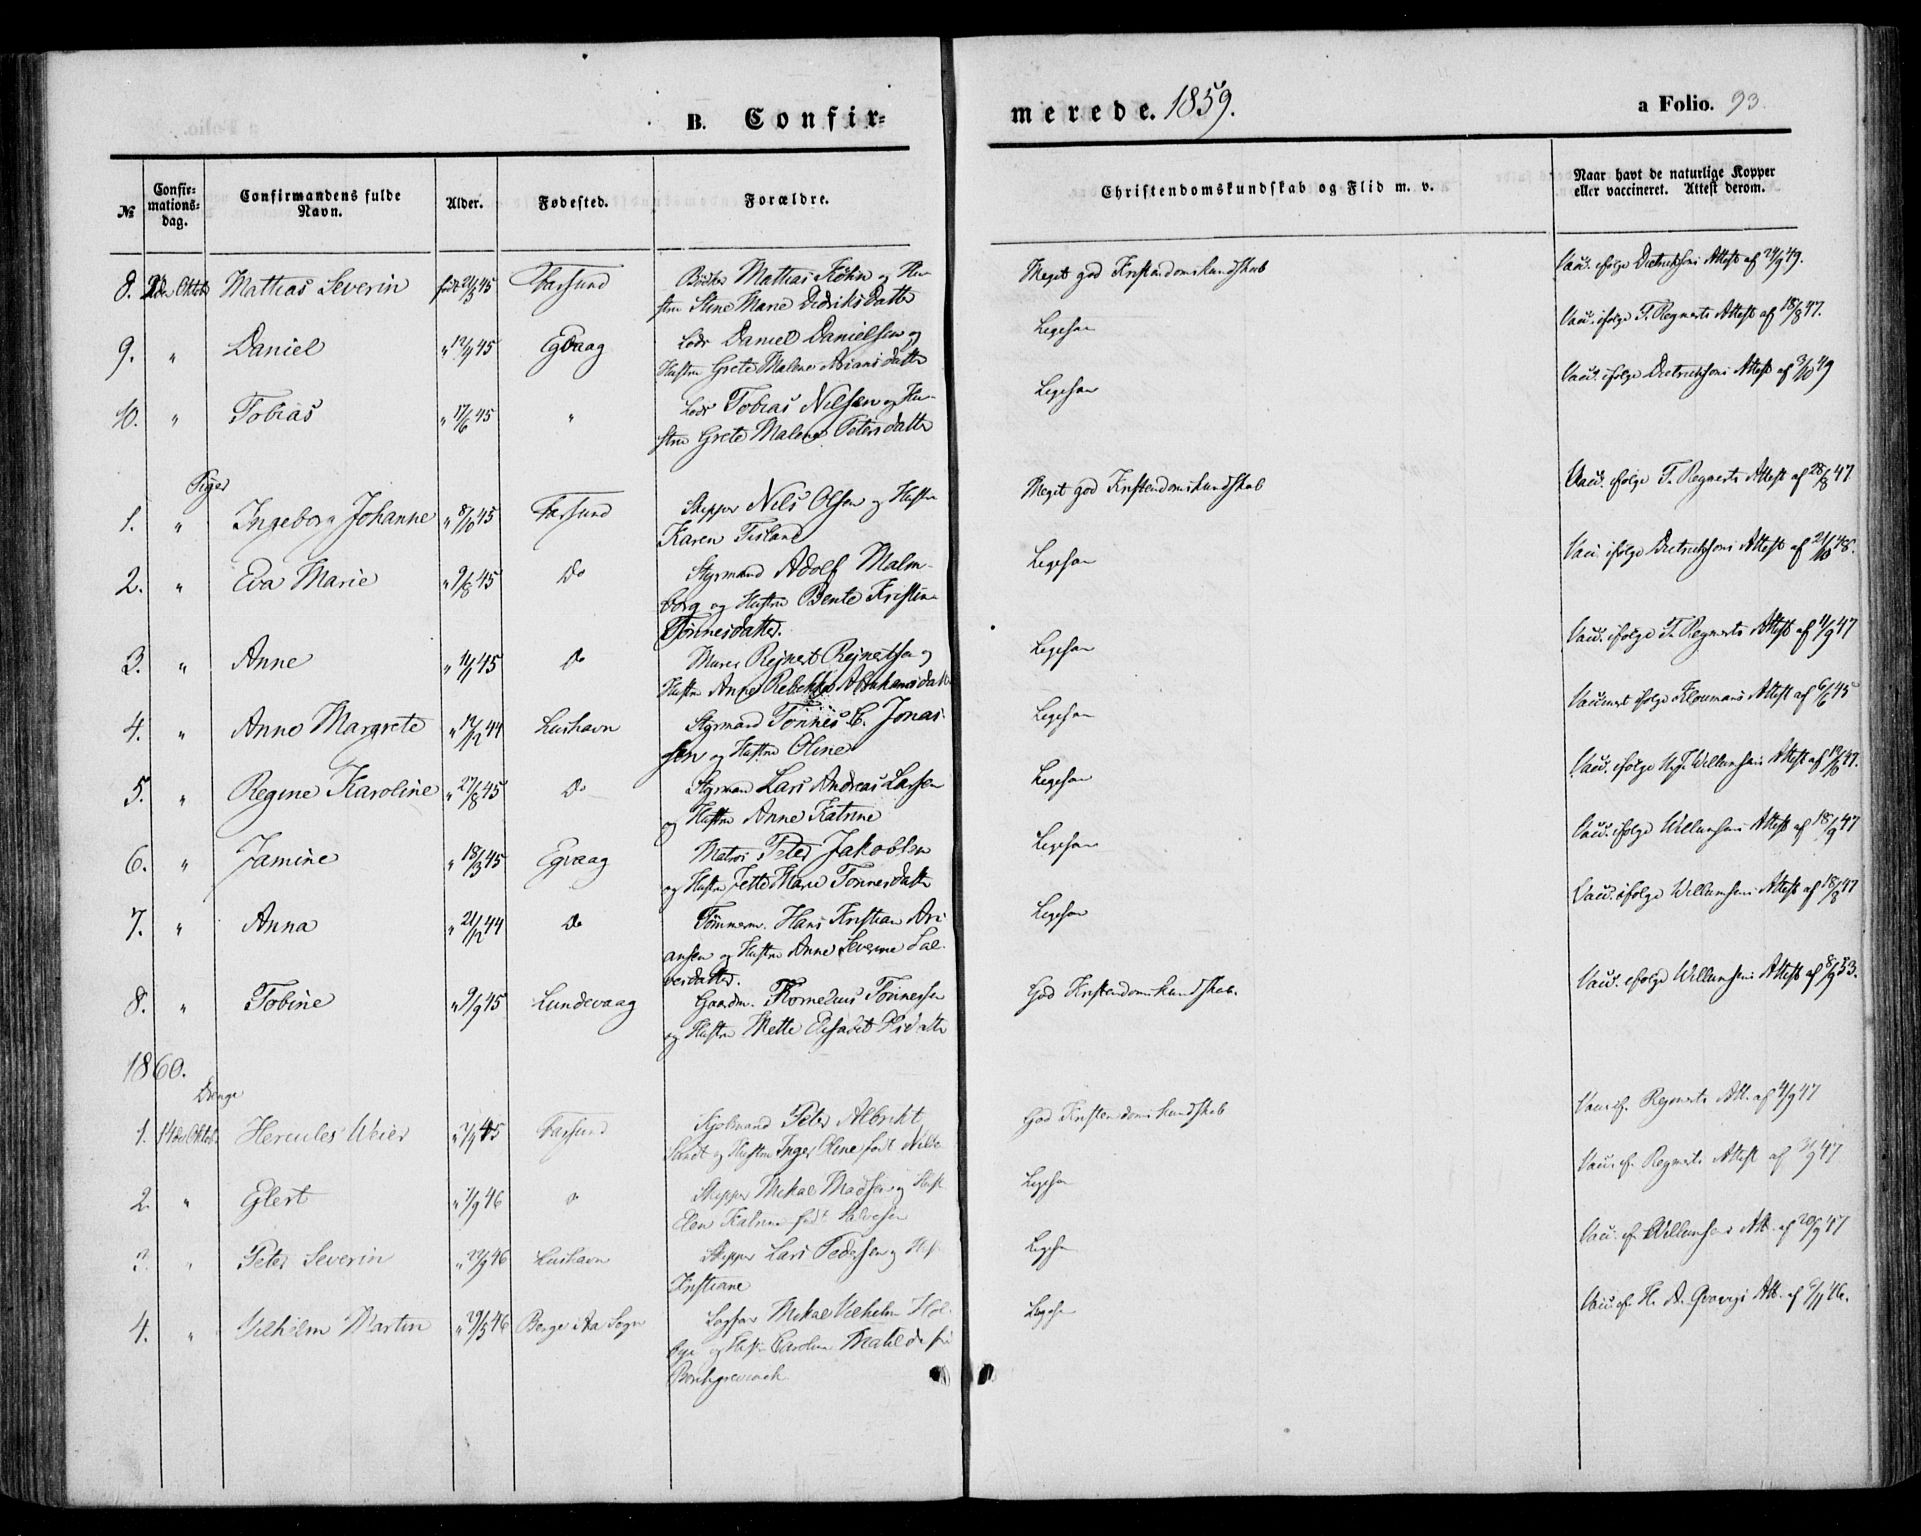 B. Confir=
merede. 1859.
a Folio. 93.
№
Confir=
mations=
dag.
Confirmandens fulde
Navn.
Alder.
Fødested.
Forældre.
Christendomskundskab og Flid m. v.
Naar havt de naturlige Kopper
eller vaccineret. Attest derom.
8. Oktob Mathias Severin født 45 Farsund Bødker Mathias Køhn og Hu-
stru Stine Marie Didriksdatter
Meget god Kristendomskundskab
Vacc. ifølge Dietrichsons Attest af 49.
9. " Daniel " 45 Egvaag Lods Daniel Danielsen og
Hustru Grete Malene Ariansdatter
Ligesaa
Vacc. ifølge T. Regnerts Attest af 18/8 47.
10. " Tobias " 17/6 45 " Lods Tobias Nilsen og Hu-
stru Grete Malene Petersdatter
Ligesaa
Vacc. ifølge Dietrichsons Attest af 3/10 49
Piger
1. " Ingeborg Johanne " 8/10 45 Farsund Skipper Nils Olsen og Hustru
Karen Tisland
Meget god Kristendomskundskab
Vacc. ifølge T. Regnerts Attest af 28/8 47
2. " Eva Marie " 9/8 45 Do Styrmand Adolf Malm-
borg og Hustru Bente Kristine
Tønnesdatter.
Ligesaa
Vacc. ifølge Dietrichsons Attest af 21/10 48.
3. " Anne " 45 Do Murer Rejnert Rejnertsen og
Hustru Anne Rebekka Abrahamsdatter
Ligesaa
Vacc. ifølge T. Regnerts Attest af 47
4. " Anne Margrete " 12/12 44 Lushavn Styrmand Tønnes C. Jonas-
sen og Hustru Oline
Ligesaa
Vaccineret ifølge Kloumans Attest af 6/6 45
5. " Regine Karoline " 27/8 45 Do Styrmand Lars Andreas Larsen
og Hustru Anne Katrine
Ligesaa
Vacc. ifølge Willumsens Attest af 47.
6. " Jamine " 18/3 45 Egvaag Matros Peter Jakobsen
og Hustru Jette Marie Tønnesdatter
Ligesaa
Vacc. ifølge Willumsens Attest af 18/9 47
7. " Anna " 21/12 44 Do Tømmerm. Hans Kristian Ari-
ansen og Hustru Anne Severine Sal-
vesdatter.
Ligesaa
Vacc. ifølge Willumsens Attest af 18/8 47
8. " Tobine " 9/9 45 Lundevaag Gaardm. Kornelius Tønnessen
og Hustru Mette Elisabet
God Kristendomskundskab.
Vacc. ifølge Willumsens Attest af 8/9 53.
1860.
Drenge
1. 14de Oktob. Hercules Weier " 45 Farsund Peter Albrikt
og Hustru Inger Oline født
God Kristendomskundskab
Vacc. if. Regnerts Att. af 4/9 47
2. " Eilert " 1/9 46 " Skipper Mikal Madsen og Hust.
Elen Katrine født Salvesen
Ligesaa
Vacc. if. Regnerts Attest af 47
3. " Peter Severin " 46 Lushavn Skipper Lars Pedersen og Hust.
Kristiane
Ligesaa
Vacc. if. Willumsens Att. af 20/9 47
4. " Vilhelm Martin " 29/5 46 Berge i Aa Sogn Mikal Vilhelm Hol-
bye og Hust. Caroline Matilde
Ligesaa
Vacc. if. H. A. Att. af 46.